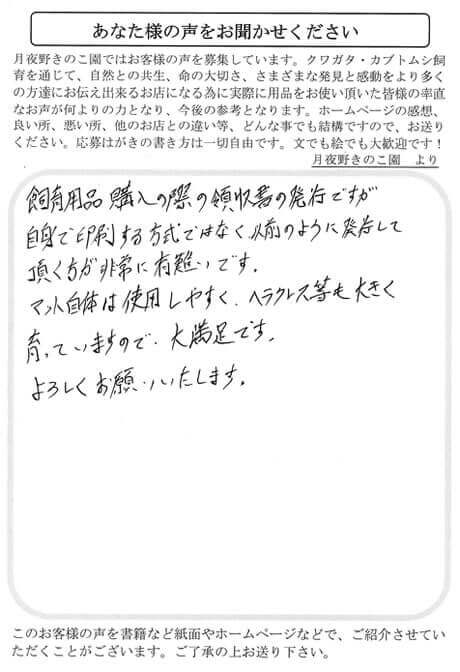 あなた様の声をお聞かせください
月夜野きのこ園ではお客様の声を募集しています。クワガタ・カブトムシ飼
育を通じて、自然との共生、命の大切さ、さまざまな発見と感動をより多く
の方達にお伝え出来るお店になる為に実際に用品をお使い頂いた皆様の率直
なお声が何よりの力となり、今後の参考となります。ホームページの感想、
良い所、悪い所、他のお店との違い等、どんな事でも結構ですので、お送り
ください。応募はがきの書き方は一切自由です。文でも絵でも大歓迎です！
月夜野きのこ園　より
飼育用品購入の際の領収書の発行ですが
自身で印刷する方式ではなく、以前のように発行して
頂く方が非常に有難いです。
マット自体は使用しやすく、ヘラクレス等も大きく
育っていますので、大満足です。
よろしくお願いいたします。
このお客様の声を書籍など紙面やホームページなどで、ご紹介させてい
ただくことがございます。ご了承の上お送り下さい。